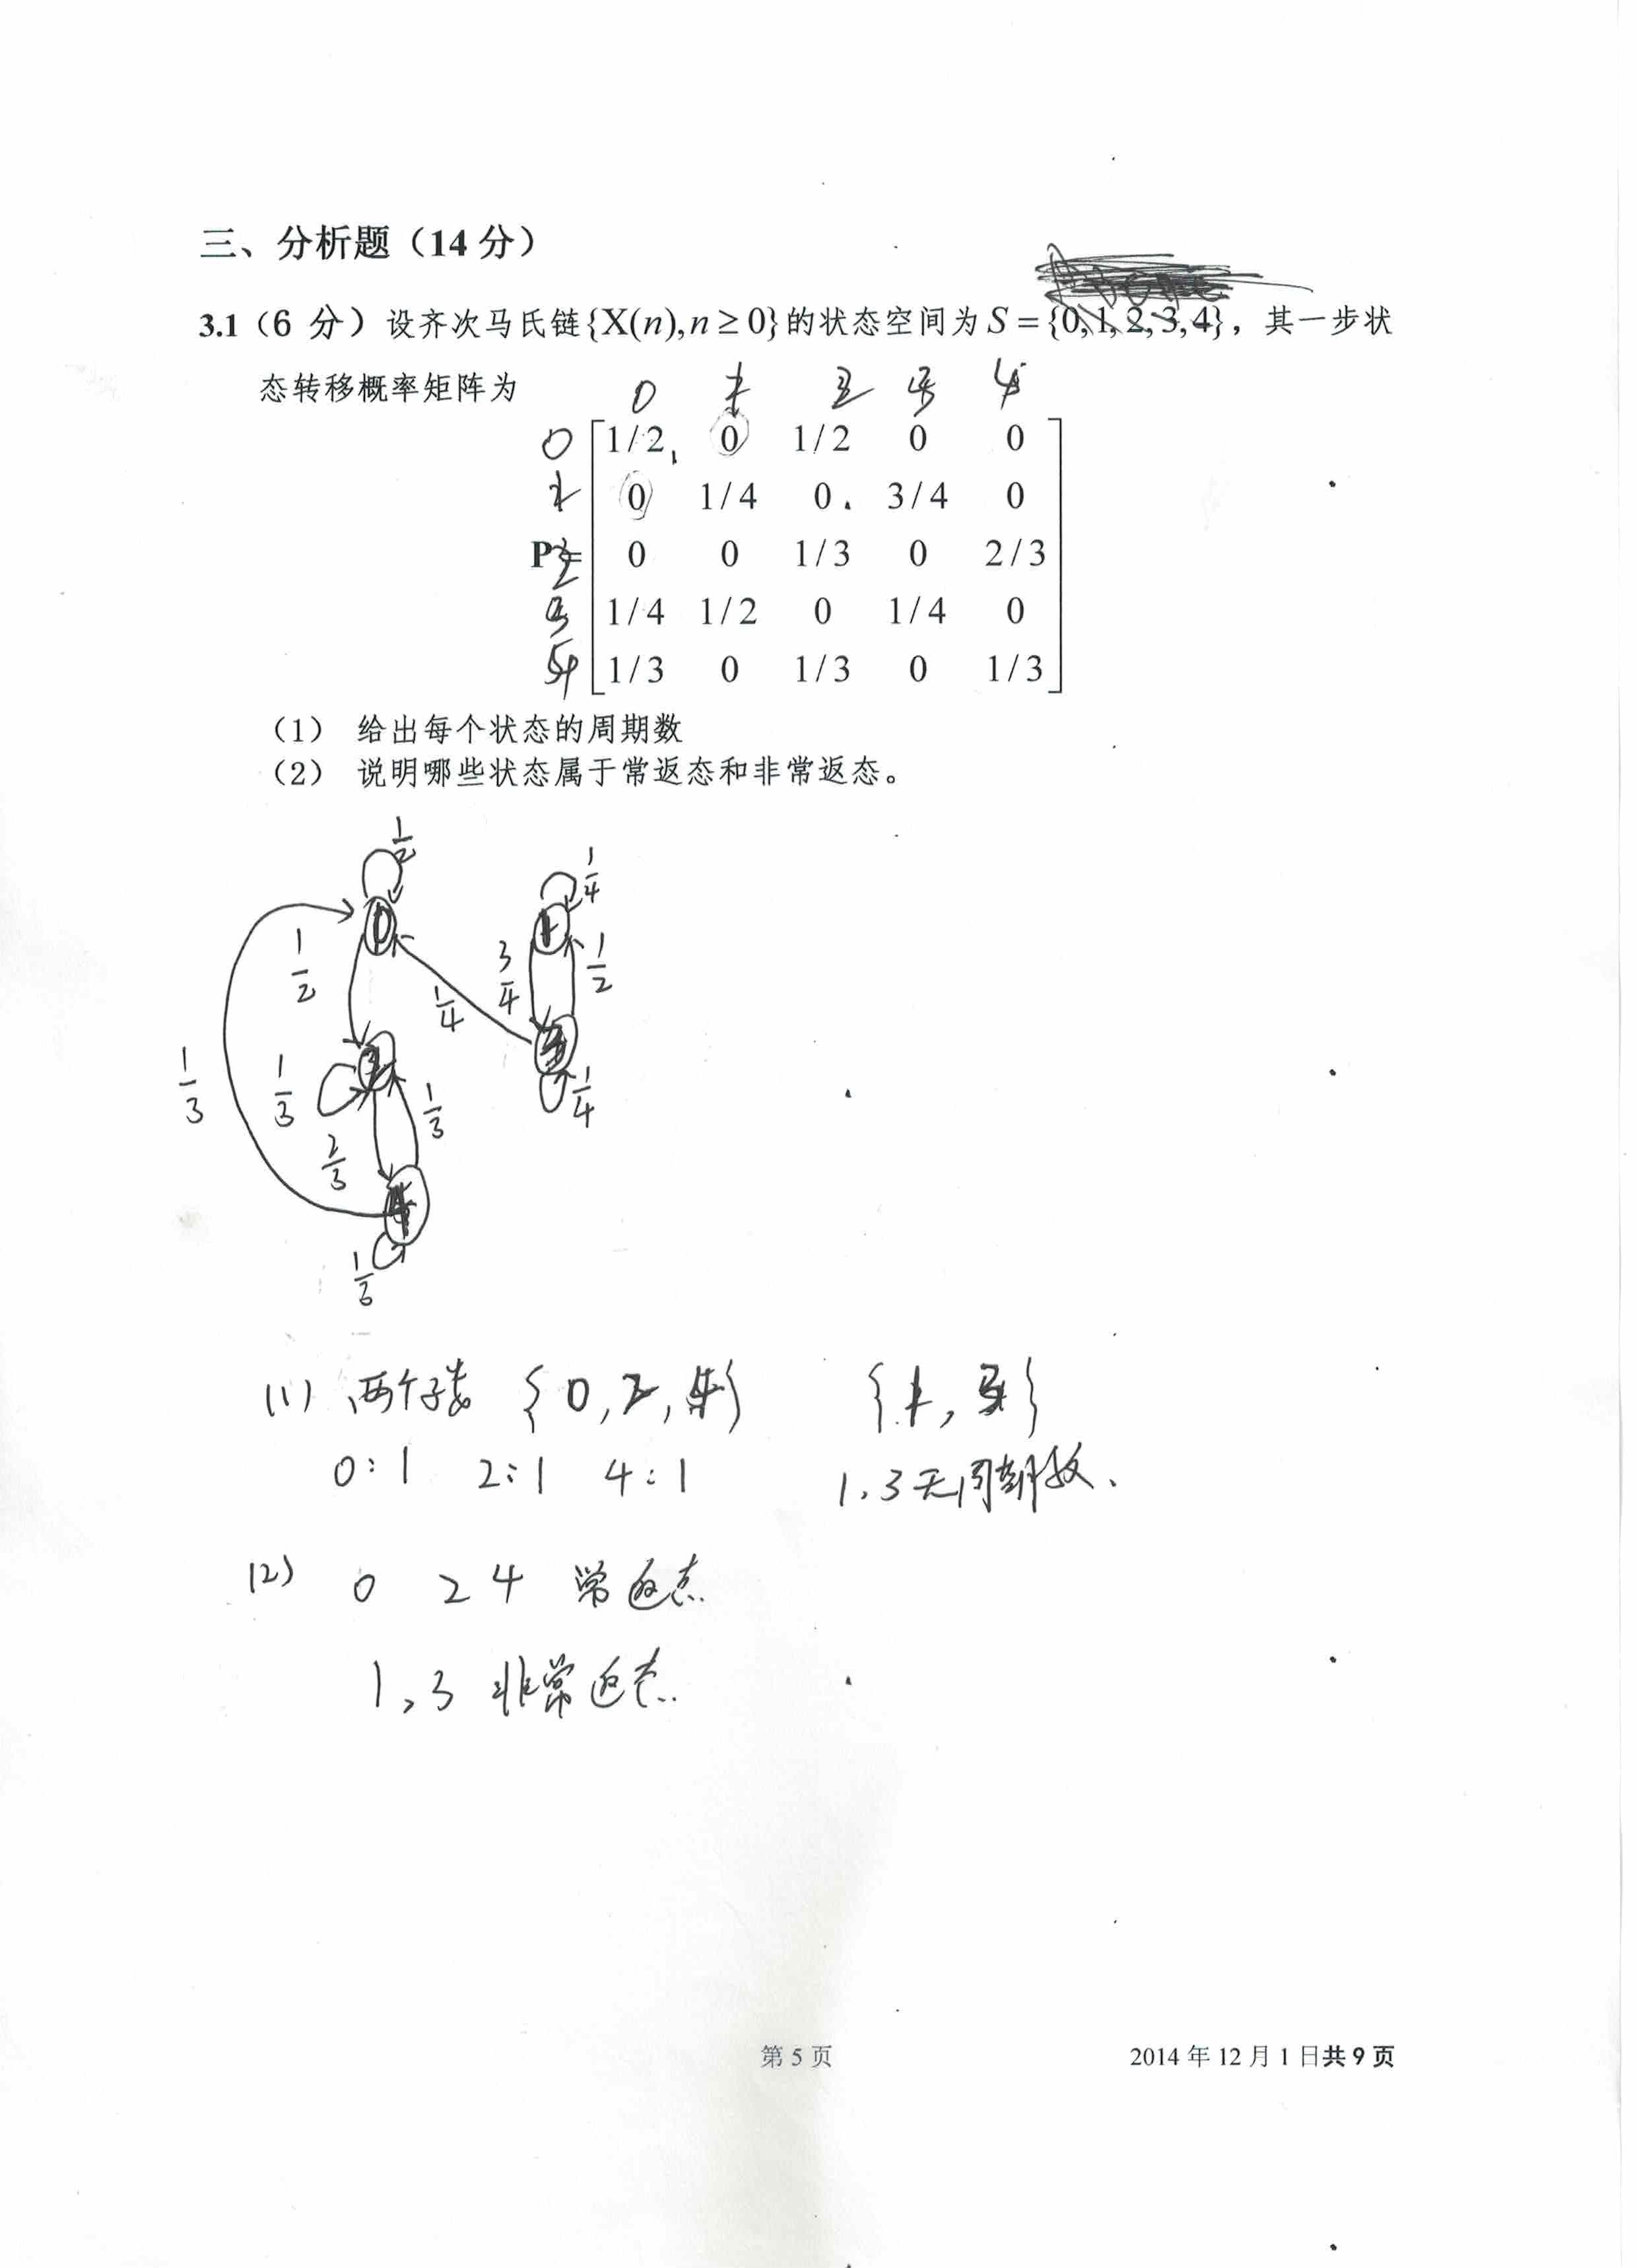 三、分析题（14 分）
3.1（6 分）设齐次马氏链{X(n),n≥0}的状态空间为 S={0,1,2,3,4}，其一步状
态转移概率矩阵为
0 1 2 3 4
0 1/2 0 1/2 0 0
1 0 1/4 0 3/4 0
P= 2 0 0 1/3 0 2/3
3 1/4 1/2 0 1/4 0
4 1/3 0 1/3 0 1/3
（1） 给出每个状态的周期数
（2） 说明哪些状态属于常返态和非常返态。
1/2
1/4
0
1
1/2
3/4
1/2
1/4
1/3
1/3
2
3
1/4
1/3
2/3
4
1/3
(1) 两个子 {0,2,4} {1,3}
0:1 2:1 4:1 1,3无周期数、
(2) 0 2 4 常返态.
1,3 非常返态.
第 5 页 2014 年 12 月 1 日共 9 页